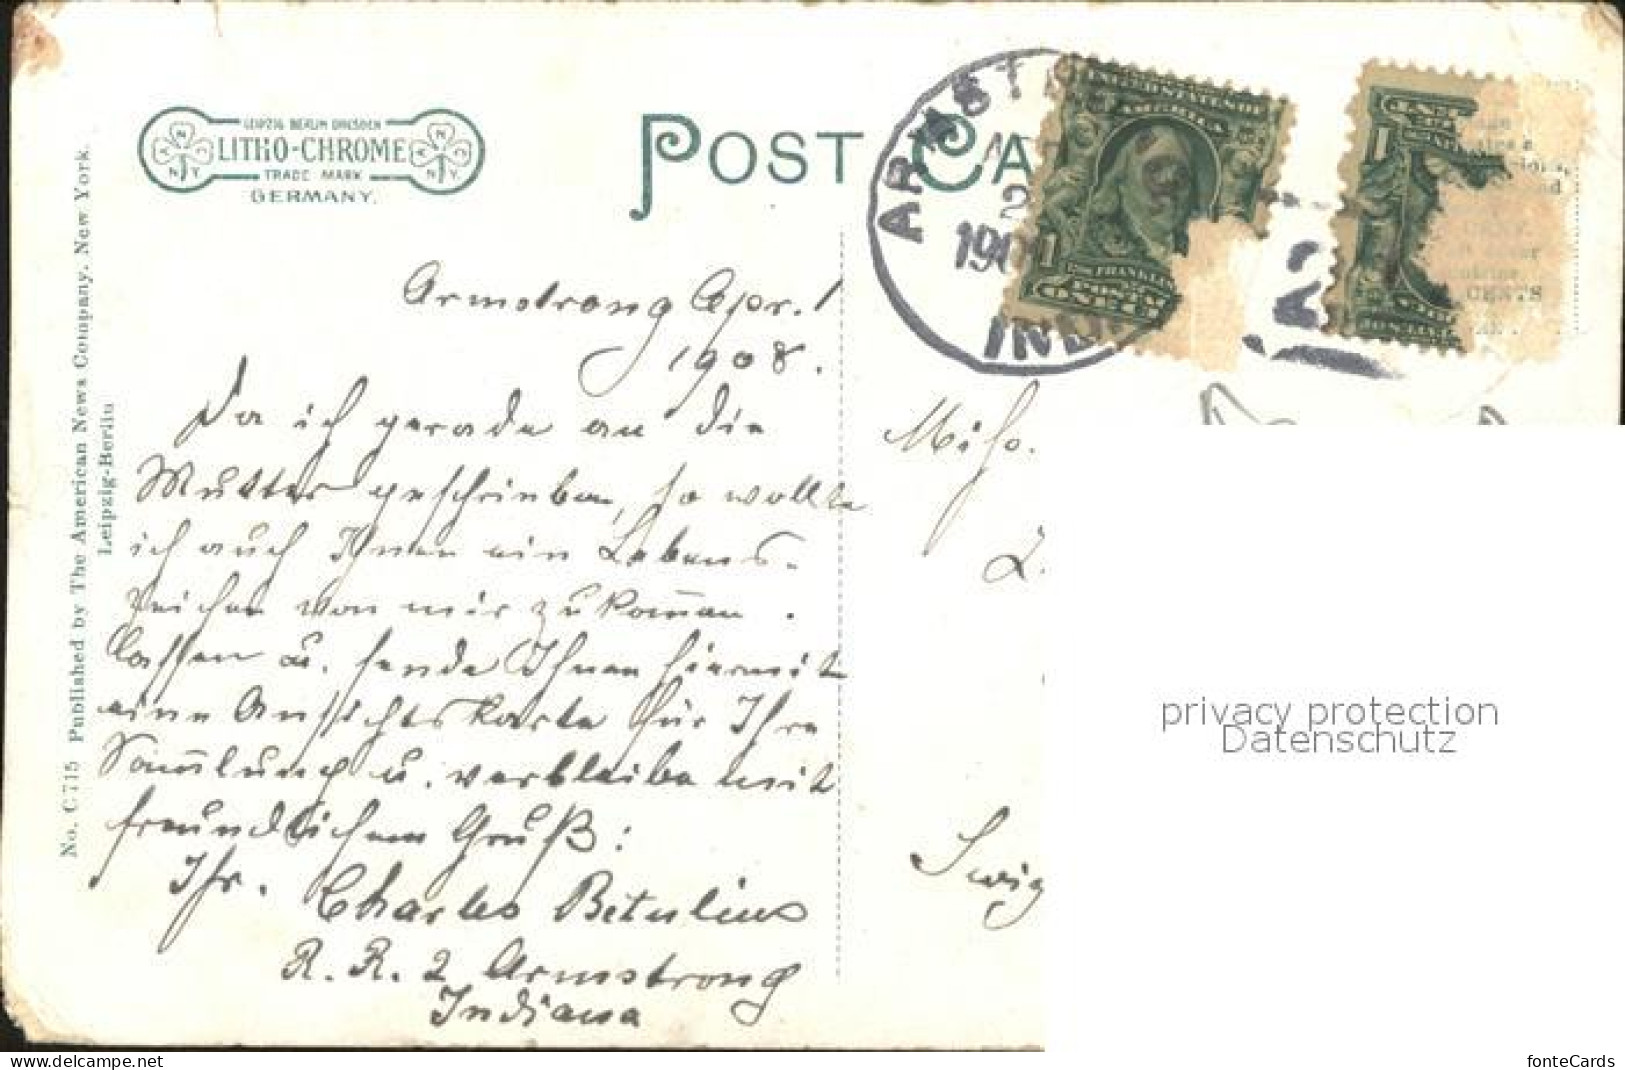 LEIPZIG BERLIN DRESDEN
LITHO-CHROME
TRADE MARK
GERMANY.
POST CA
ARMST
2
190
IND
UNITED STATES OF
AMERICA
1
FRANKLIN
POSTA
ONE
1
CENTS
No. C715 Published by The American News Company, New York.
Leipzig-Berlin
Armstrong Apr. 1
1908.
Da ich gerade an die
Mutter geschrieben, so wollte
ich auch Ihnen ein Lebens-
zeichen von mir zukom̅en
lassen u. sende Ihnen hiermit
eine Ansichtskarte für Ihre
Sam̅lung u. verbleibe mit
freundlichem Gruß:
Ihr. Charles Betulius
R. R. 2 Armstrong
Indiana
Miss.
Z.
Swig
privacy protection
Datenschutz
ak-ansichtskarten.de
fonteCards